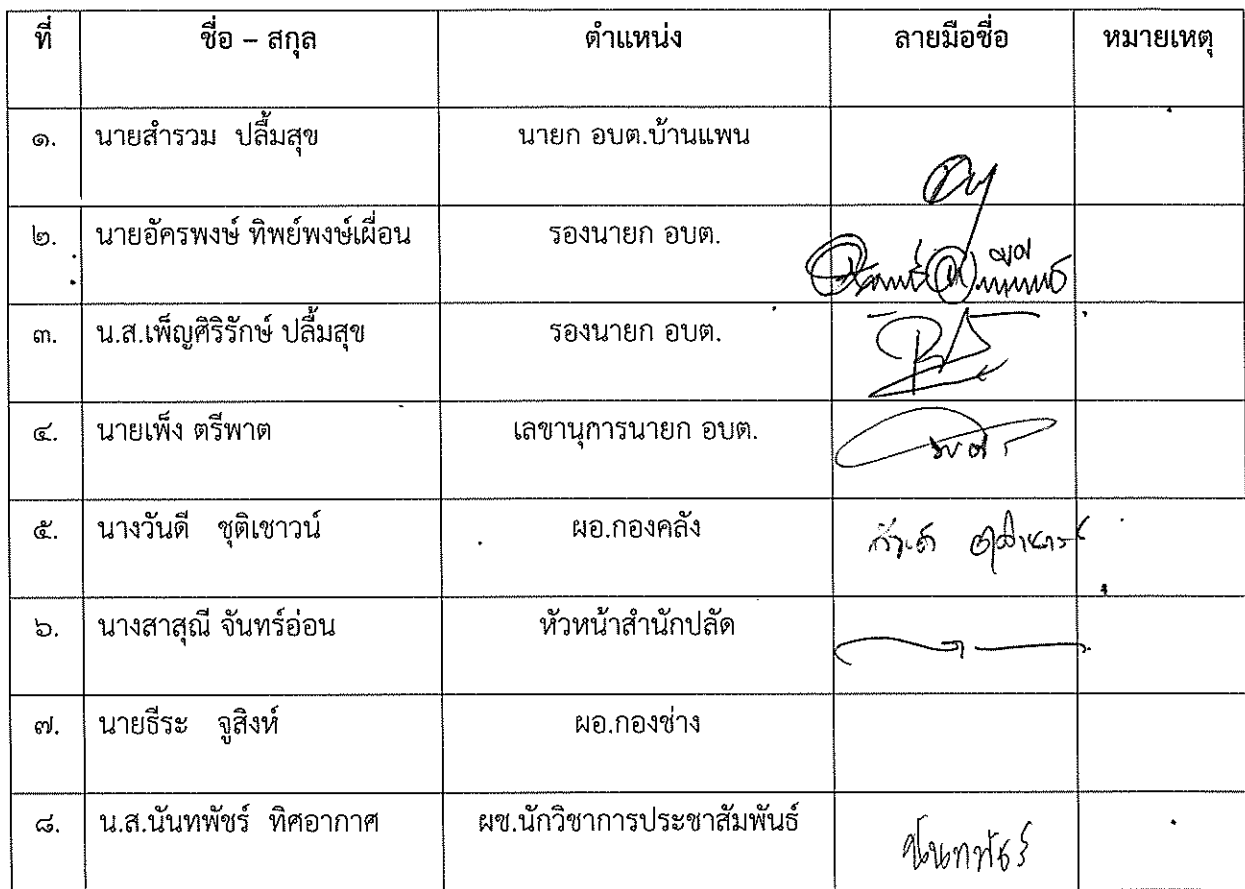 ที่ ชื่อ – สกุล ตำแหน่ง ลายมือชื่อ หมายเหตุ
๑. นายสำรวม ปลื้มสุข นายก อบต.บ้านแพน
๒. นายอัครพงษ์ ทิพย์พงษ์เผื่อน รองนายก อบต.
๓. น.ส.เพ็ญศิริรักษ์ ปลื้มสุข รองนายก อบต.
๔. นายเพ็ง ตรีพาต เลขานุการนายก อบต.
๕. นางวันดี ชุติเชาวน์ ผอ.กองคลัง
๖. นางสาสุณี จันทร์อ่อน หัวหน้าสำนักปลัด
๗. นายธีระ จูสิงห์ ผอ.กองช่าง
๘. น.ส.นันทพัชร์ ทิศอากาศ ผช.นักวิชาการประชาสัมพันธ์ นันทพัชร์